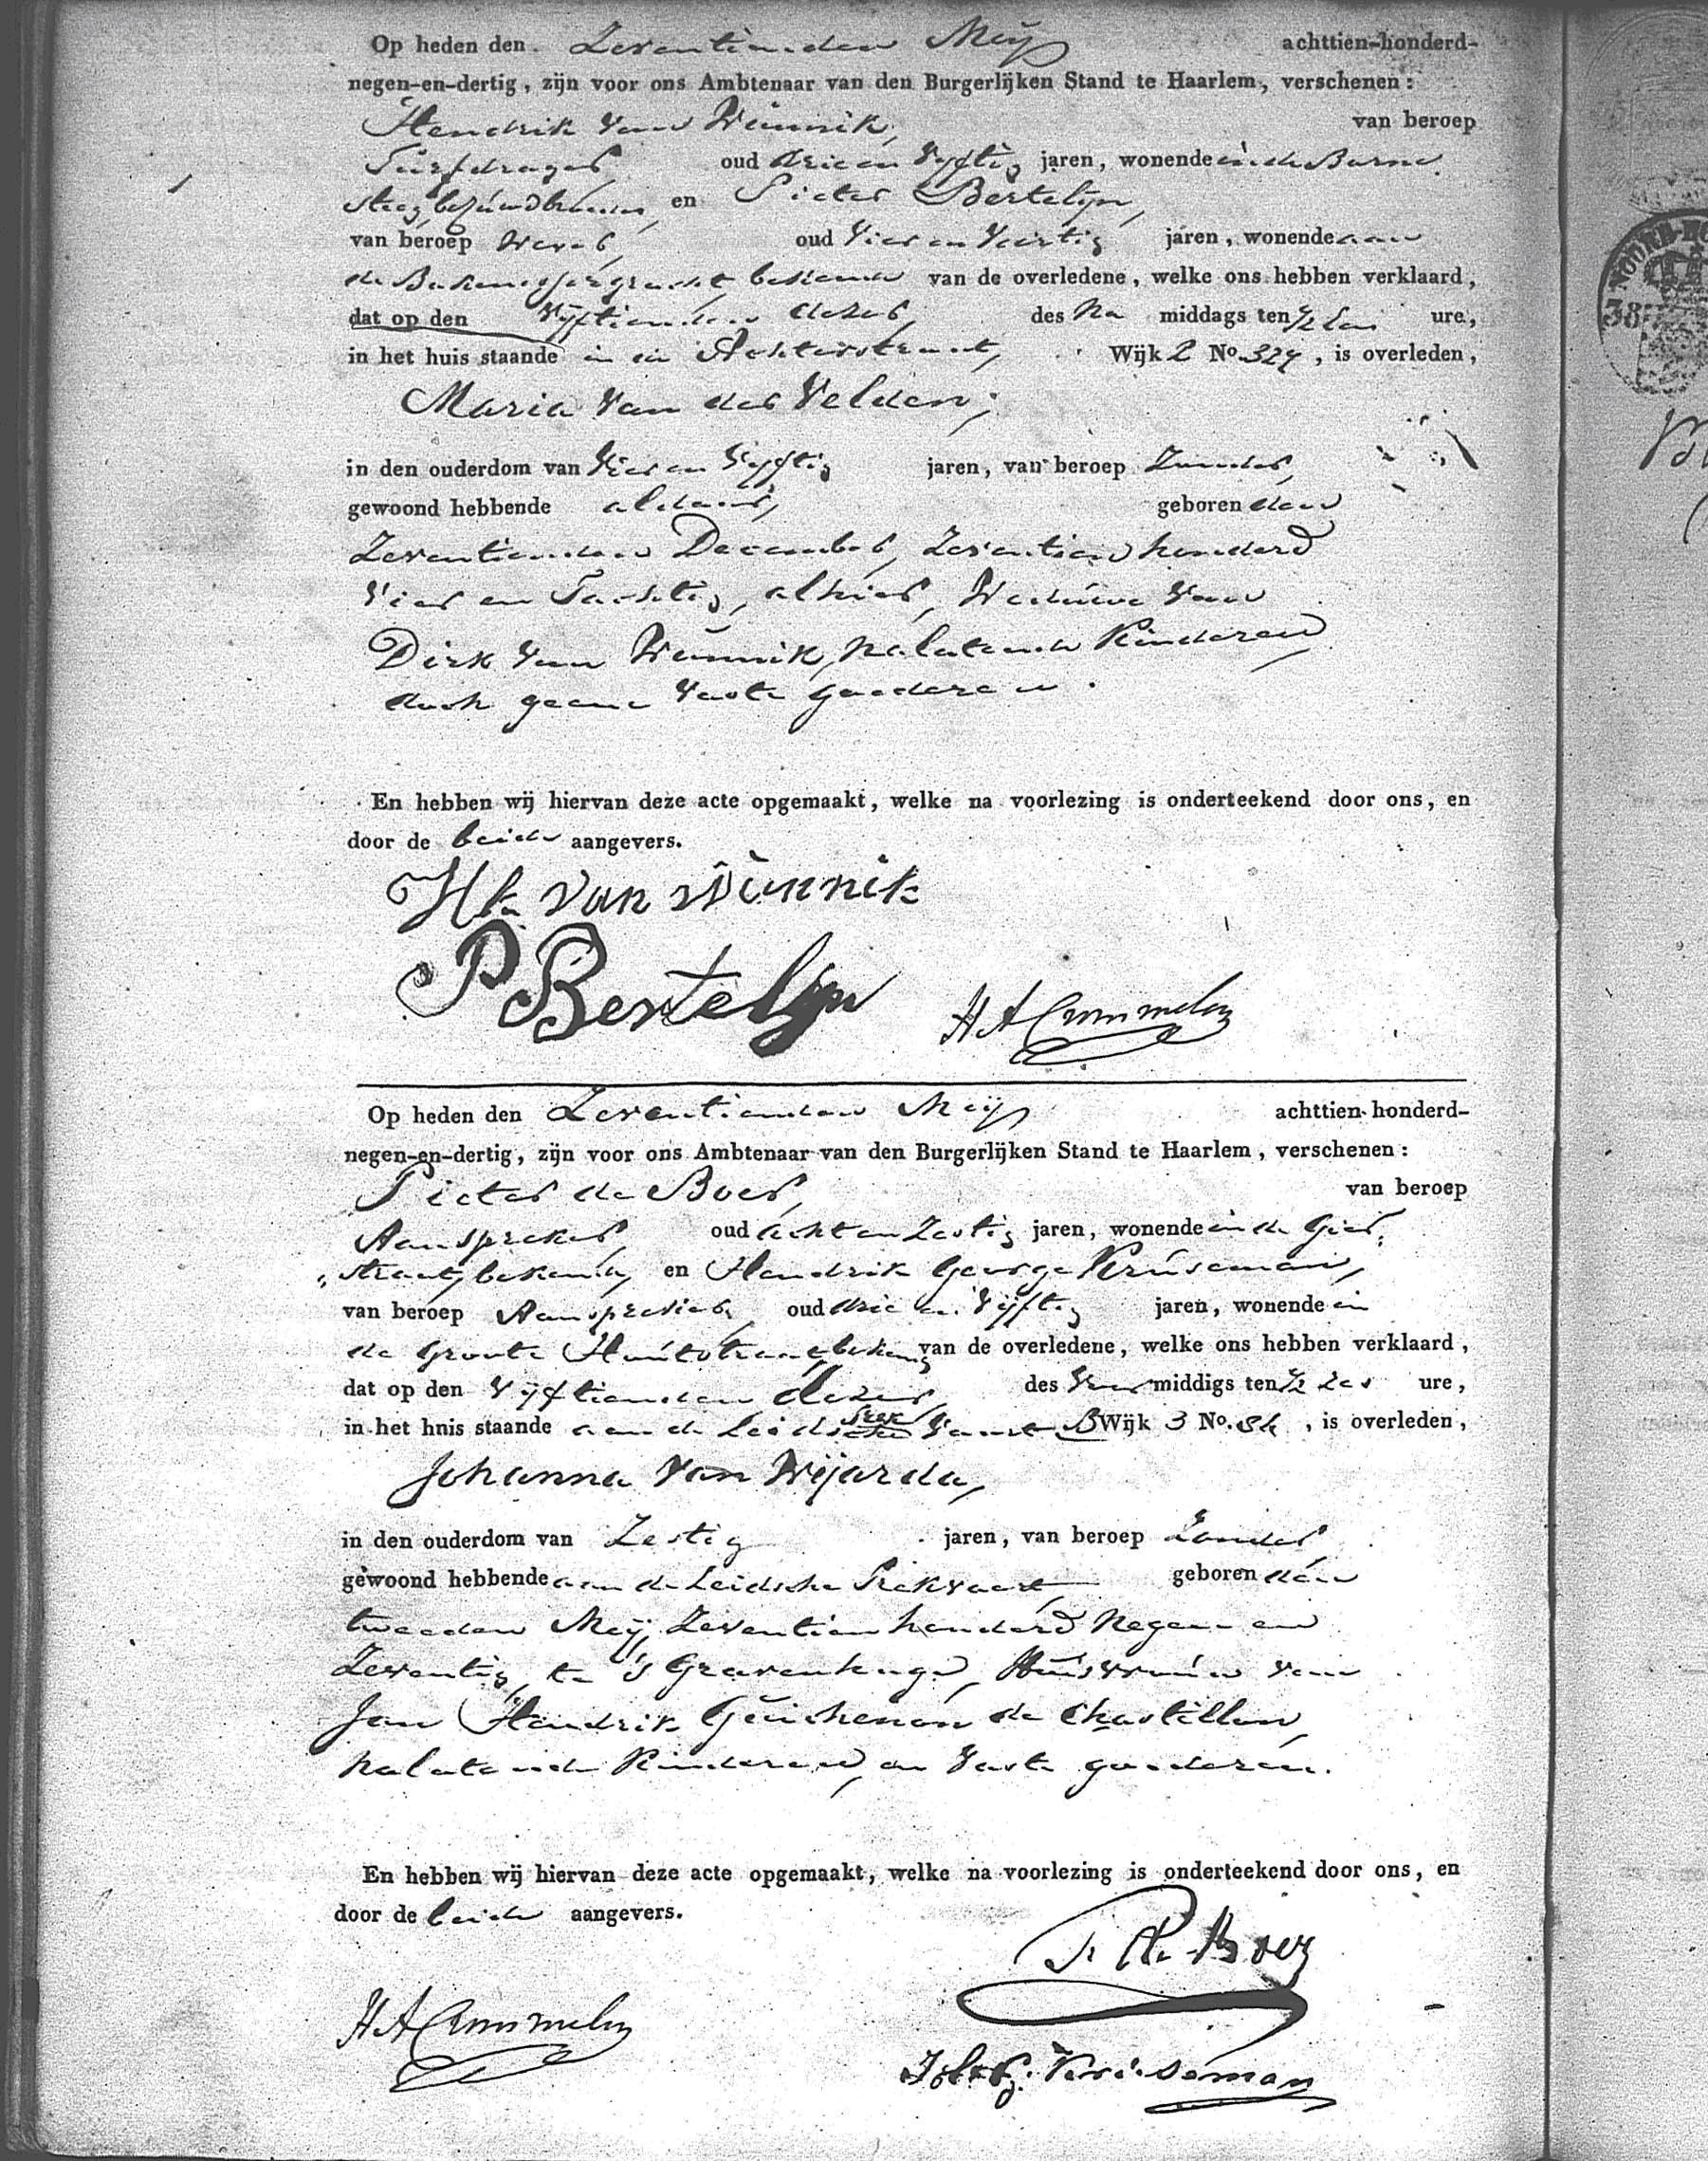 Op heden den Zeventienden Meij achttien-honderd-
negen-en-dertig, zijn voor ons Ambtenaar van den Burgerlijken Stand te Haarlem, verschenen:
Hendrik van Wünnik, van beroep
Turfdrager, oud drie en Vyftig jaren, wonende in de
steeg, en Pieter Bertelijn,
van beroep Wever, oud Vier en Veertig jaren, wonende aan
de Bakenessergracht bekende van de overledene, welke ons hebben verklaard,
dat op den Vijftienden dezer, des Na middags ten ½ Een ure,
in het huis staande in de Achterstraat, Wijk 2 No. 324, is overleden,
Maria van der Velden,
in den ouderdom van Vier en Vyftig jaren, van beroep Zonder,
gewoond hebbende aldaar, geboren den
Zeventienden December, Zeventien honderd
Vier en Tachtig, alhier, Weduwe van
Dirk van Wünnik, nalatende Kinderen
doch geene vaste goederen.
En hebben wij hiervan deze acte opgemaakt, welke na voorlezing is onderteekend door ons, en
door de beide aangevers.
Hk van Wünnik
P Bertelijn
H A Crommelin
Op heden den Zeventienden Meij achttien-honderd-
negen-en-dertig, zijn voor ons Ambtenaar van den Burgerlijken Stand te Haarlem, verschenen:
Pieter de Boer, van beroep
Aanspreker, oud acht en Zestig jaren, wonende in de Gier-
straat, bekende, en Hendrik George Kruseman,
van beroep Aanspreker, oud drie en Vijftig jaren, wonende in
de Groote Houtstraat, bekende van de overledene, welke ons hebben verklaard,
dat op den Vijftienden dezer, des Voor middigs ten ½ Zes ure,
in het huis staande aan de Leidsche Trek Vaart B Wijk 3 No. 84, is overleden,
Johanna van Wijarda,
in den ouderdom van Zestig jaren, van beroep Zonder,
gewoond hebbende aan de Leidsche Trekvaart geboren den
tweeden Meij, Zeventien honderd Negen en
Zeventig, te 's Gravenhage, Huisvrouw van
Jan Hendrik Guichenon de Chastillon,
nalatende Kinderen, en Vaste goederen.
En hebben wij hiervan deze acte opgemaakt, welke na voorlezing is onderteekend door ons, en
door de beide aangevers.
P. de Boer
H A Crommelin
Kruseman
NOORD-HO
38